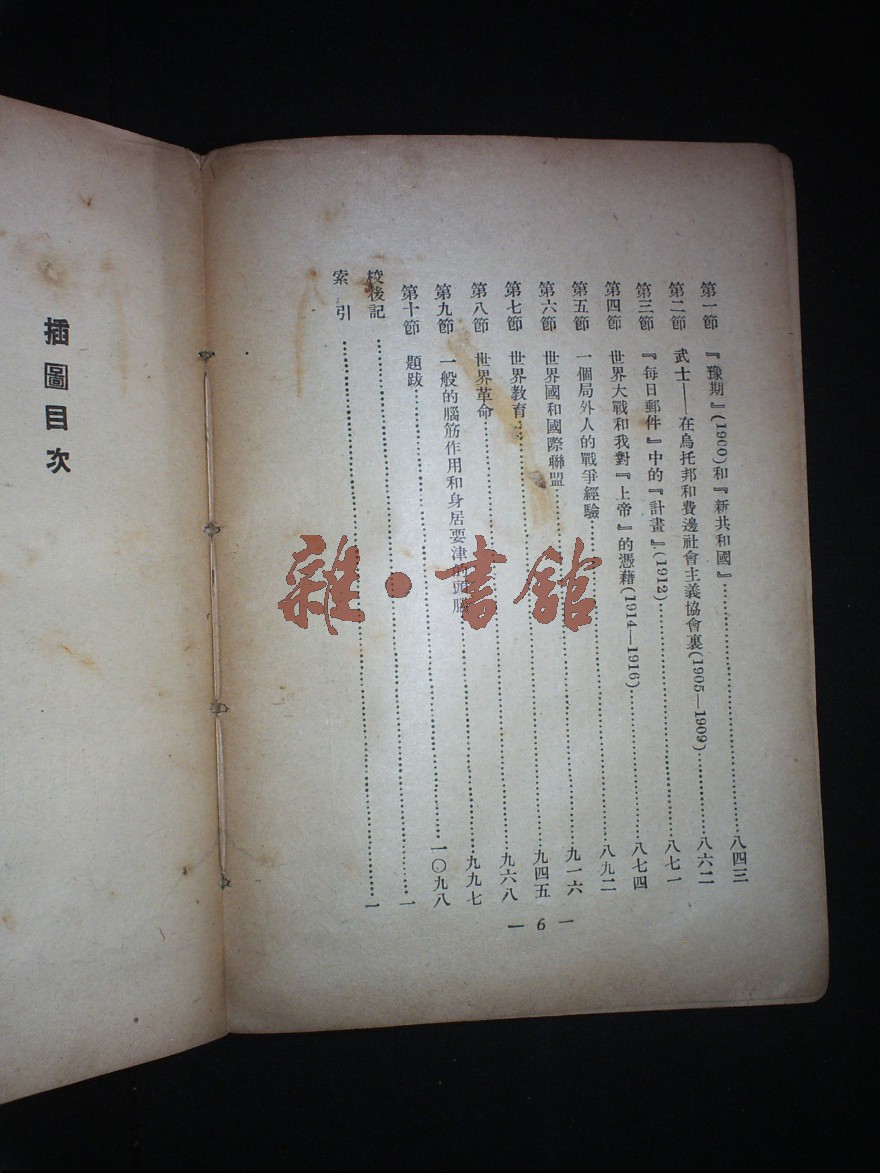 第一節　『豫期』(1900)和『新共和國』……八四三
第二節　武士——在烏托邦和費邊社會主義協會裏(1905—1909)……八六二
第三節　『每日郵件』中的『計畫』(1912)……八七一
第四節　世界大戰和我對『上帝』的憑藉(1914—1916)……八七四
第五節　一個局外人的戰爭經驗……八九二
第六節　世界國和國際聯盟……九一六
第七節　世界教育……九四五
第八節　世界革命……九六八
第九節　一般的腦筋作用和身居要津的頭腦……九九七
第十節　題跋……一〇九八
校後記……一
索引……一
— 6 —
插圖目次
雜·書館